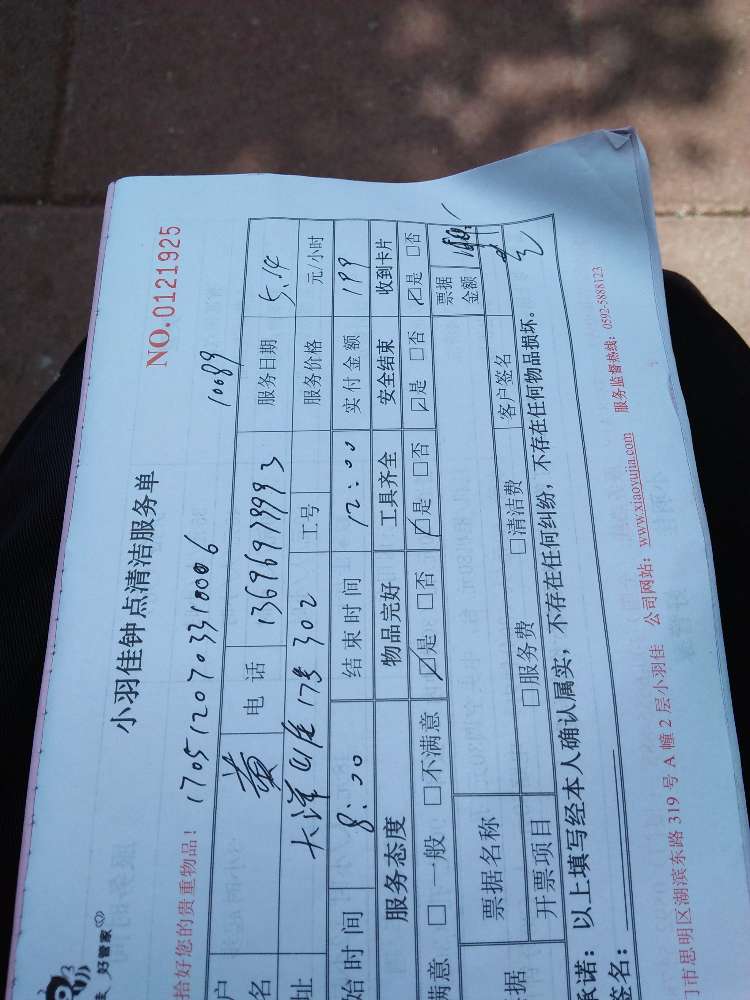 夫、好管家
小羽佳钟点清洁服务单
NO.0121925
拾好您的贵重物品！
1705120703310006
10089
户名 黄 电话 13696913993 服务日期 5.14
址 大洋山庄17号302 工号 服务价格 元/小时
始时间 8:00 结束时间 12:00 实付金额 199
服务态度 物品完好 工具齐全 安全结束 收到卡片
满意 □ 一般 □不满意 ☑是 □否 ☑是 □否 ☑是 □否 ☑是 □否
据 票据名称 票据金额 199
开票项目 □服务费 □清洁费 客户签名
承诺：以上填写经本人确认属实，不存在任何纠纷，不存在任何物品损坏。
签名：
门市思明区湖滨东路 319 号 A 幢 2 层小羽佳 公司网站：www.xiaoyujia.com 服务监督热线：0592-5888123